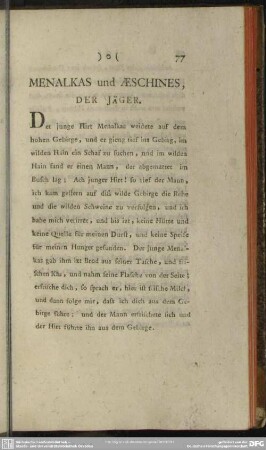 ) o (
77
MENALKAS und ÆSCHINES,
DER JÄGER.
Der junge Hirt Menalkas weidete auf dem
hohen Gebirge, und er gieng tief ins Gebirg, im
wilden Hain ein Schaf zu suchen, und im wilden
Hain fand er einen Mann, der abgemattet im
Busch lag; Ach junger Hirt! so rief der Mann,
ich kam gestern auf diß wilde Gebirge die Rehe
und die wilden Schweine zu verfolgen, und ich
habe mich verirrt, und bis izt, keine Hütte und
keine Quelle für meinen Durst, und keine Speise
für meinen Hunger gefunden. Der junge Menal-
kas gab ihm izt Brod aus seiner Tasche, und fri-
schen Käs, und nahm seine Flasche von der Seite;
erfrische dich, so sprach er, hier ist frische Milch,
und dann folge mir, daß ich dich aus dem Ge-
birge führe; und der Mann erfrischte sich und
der Hirt führte ihn aus dem Gebirge.
DFG